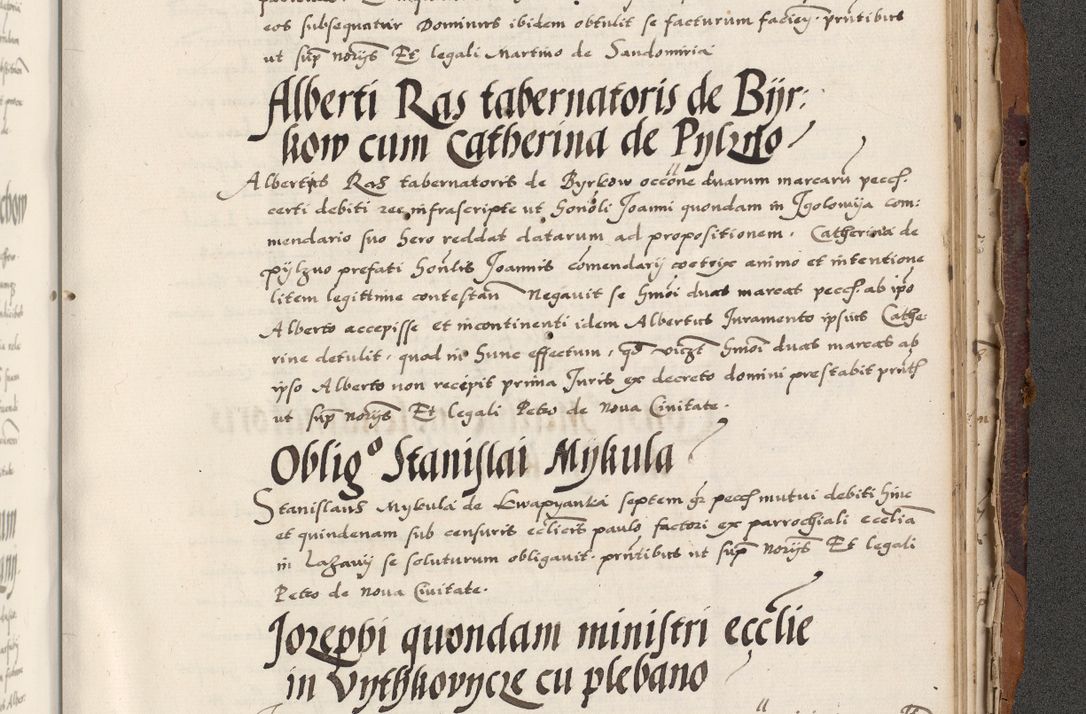 eos subsequatur Dominus ibidem obtulit se facturum faciem. prntibus
ut sup norijs Et legali Martino de Sandomiria
Alberti Ras tabernatoris de Bijr:
kow cum Catherina de Pylzno
Albertus Ras tabernatoris de Byrkow occone duarum marcaru pecch.
certi debiti rec infrascripte ut honoli Joanni quondam in Jgolomija com:
mendario suo hero reddat datarum ad propositionem. Catherina de
pijlzno prefati honlis Joannis comendarij coctrix animo et intentione
litem legittime contestan Negavit se hmoi duas marcas pecch. ab ipo
Alberto accepisse et incontinenti idem Albertus Juramento ipsius Cathe:
rine detulit. quod in hunc effectum, qd viczt hmoi duas marcas ab
ipso Alberto non recepit prima Juris ex decreto domini prestabit prnth
ut sup norijs Et legali Petro de Nova Civitate.
Obligo Stanislai Mykula
Stanislaus Mykula de Kwapyanka septem gr pecch mutui debiti hinc
et quindenam sub censuris ecclicis paulo factori ex parrochiali ecclia
in Lazanij se soluturum obligavit. prntibus ut sup norijs Et legali
Petro de Nova Civitate.
Jozephi quondam ministri ecclie
in Vythkovycze cu plebano